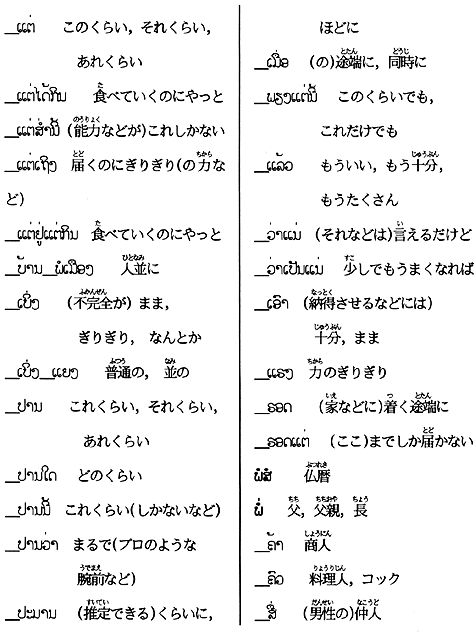 __ແຕ່ このくらい, それくらい,
あれくらい
__ແຕ່ໄດ້ກິນ 食べていくのにやっと
__ແຕ່ສ່ຳນີ້ (能力などが)これしかない
__ແຕ່ເຖິງ 届くのにぎりぎり(の力な
ど)
__ແຕ່ຢູ່ແຕ່ກິນ 食べていくのにやっと
__ບ້ານ__ພໍເມືອງ 人並に
__ເບິ່ງ (不完全が) まま,
ぎりぎり, なんとか
__ເບິ່ງ__ແຍງ 普通の, 並の
__ປານ これくらい, それくらい,
あれくらい
__ປານໃດ どのくらい
__ປານນີ້ これくらい(しかないなど)
__ປານວ່າ まるで(プロのような
腕前など)
__ປະມານ (推定できる)くらいに,
ほどに
__ເມື່ອ (の)途端に, 同時に
__ພຽງແຕ່ນີ້ このくらいでも,
これだけでも
__ແລ້ວ もういい, もう十分,
もうたくさん
__ວ່າແມ່ (それなどは)言えるだけど
__ວ່າເປັນແມ່ 少しでもうまくなれば
__ເອົາ (納得させるなどには)
十分, まま
__ແຮງ 力のぎりぎり
__ຮອດ (家などに)着く途端に
__ຮອດແຕ່ (ここ)までしか届かない
ພໍສໍ 仏暦
ພໍ່ 父, 父親, 長
__ຄ້າ 商人
__ຄົວ 料理人, コック
__ສື່ (男性の)仲人